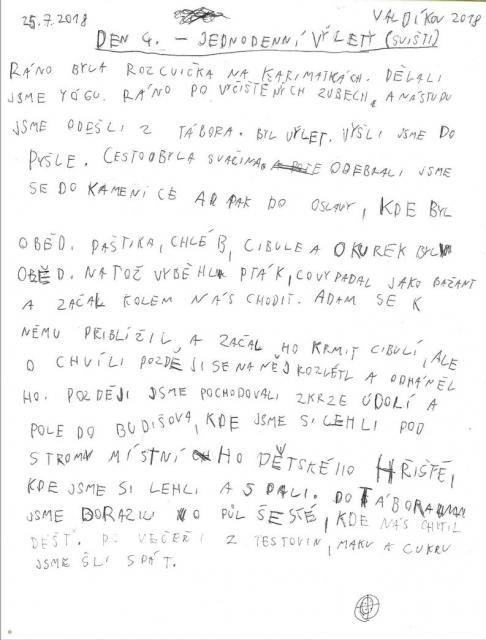 25.7.2018 VALDÍKOV 2018
DEN 4. – JEDNODENNÍ VÝLETY (SVIŠTI)
RÁNO BYLA ROZCVIČKA NA KARIMATKÁCH. DĚLALI
JSME YÓGU. RÁNO PO VYČIŠTĚNÝCH ZUBECH, A NÁSTUPU
JSME ODEŠLI Z TÁBORA. BYL VÝLET. VYŠLI JSME DO
PYŠLE. CESTOU BYLA SVAČINA. ODEBRALI JSME
SE DO KAMENICE A PAK DO OSLAVY, KDE BYL
OBĚD. PAŠTIKA, CHLÉB, CIBULE A OKUREK BYL
OBĚD. NATOŽ VYBĚHL PTÁK, CO VYPADAL JAKO BAŽANT
A ZAČAL KOLEM NÁS CHODIT. ADAM SE K
NĚMU PŘIBLÍŽIL, A ZAČAL HO KRMIT CIBULÍ, ALE
O CHVÍLI POZDĚJI SE NA NĚJ ROZLÉTL A ODHÁNĚL
HO. POZDĚJI JSME POCHODOVALI SKRZE ÚDOLÍ A
POLE DO BUDIŠOVA, KDE JSME SI LEHLI POD
STROMY MÍSTNÍHO DĚTSKÉHO HŘIŠTĚ,
KDE JSME SI LEHLI A SPALI. DO TÁBORA
JSME DORAZILI O PŮL ŠESTÉ, KDE NÁS CHYTIL
DÉŠŤ. PO VEČEŘI Z TĚSTOVIN, MAKU A CUKRU
JSME ŠLI SPÁT.